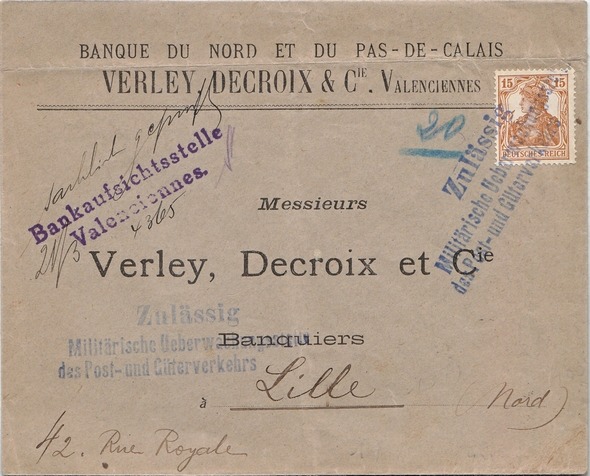 BANQUE DU NORD ET DU PAS-DE-CALAIS
VERLEY, DECROIX & CIE. VALENCIENNES
15 15
DEUTSCHES REICH
20
sachlich geprüft
Bankaufsichtsstelle
Valenciennes.
21/3 4365
Zulässig
Militärische Ueberwachungsstelle
des Post- und Güterverkehrs
Messieurs
Verley, Decroix et Cie
Banquiers
Zulässig
Militärische Ueberwachungsstelle
des Post- und Güterverkehrs
à Lille (Nord)
42. Rue Royale